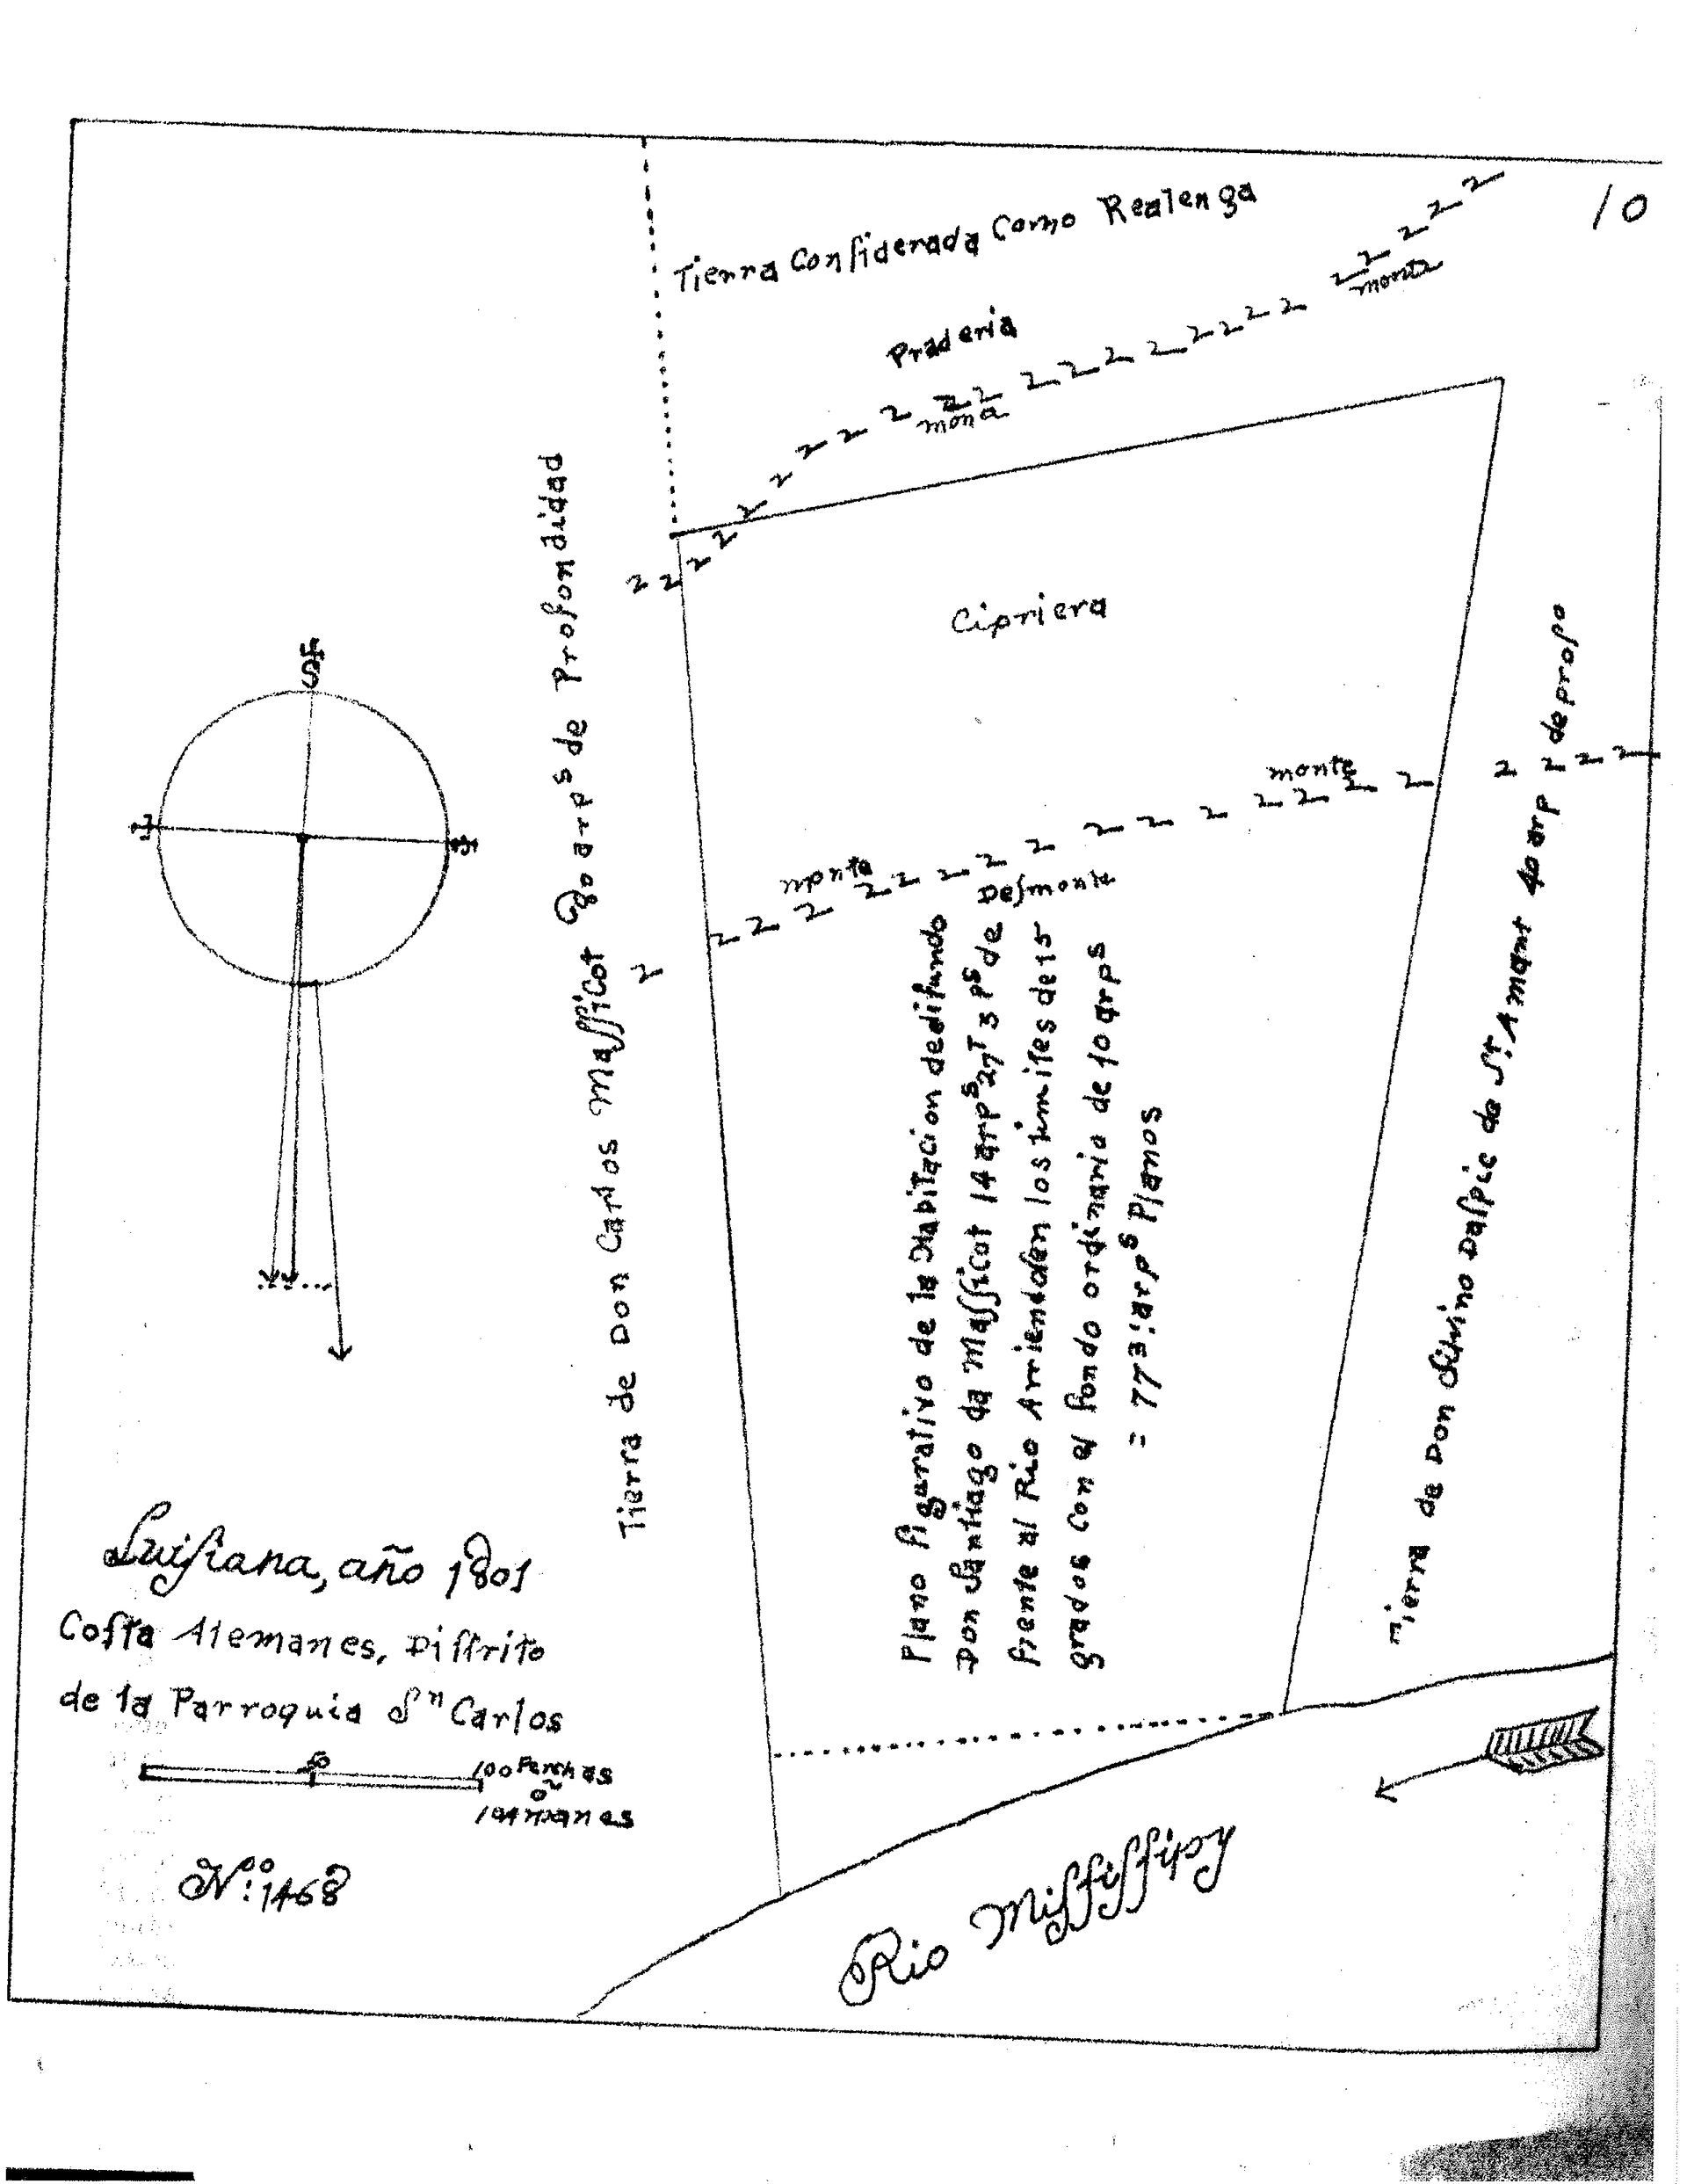 10
Tierra Conſiderada Como Realenga
Praderia
monte
Cipriera
monte
monte
Deſmonte
Tierra de Don Carlos Maſſicot 80 arpˢ de Profondidad
Plano figurativo de la Habitacion dedifundo
Don Santiago de Maſſicot 14 arpˢ 27ᵀ 3 pˢ de
frente al Rio Arriendden los Limites de 15
grados con el fondo ordinario de 40 arpˢ
= 773: arpˢ Planos
Tierra de Don Silvino Daſpic de Sᵗ. Amant 40 arp de profo
Luiſiana, año 1801
Coſta Alemanes, Diſtrito
de la Parroquia Sⁿ Carlos
100 Perchas
ō
N.º 1468
Rio Miſſiſſipy